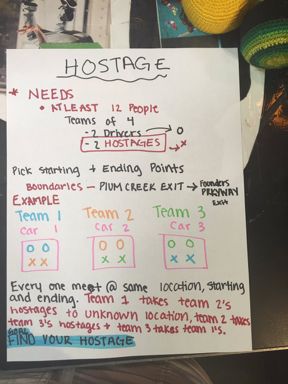 HOSTAGE
* NEEDS
• ATLEAST 12 People
Teams of 4
- 2 Drivers → O
- 2 HOSTAGES → X
Pick Starting + Ending Points
Boundaries — PLUM CREEK EXIT → Founders
PRKYWAY
Exit
EXAMPLE
Team 1 Team 2 Team 3
Car 1 Car 2 Car 3
O O O O O O
X X X X X X
Every one meet @ same location, starting
and ending. Team 1 takes team 2's
hostages to unknown location, team 2 takes
team 3's hostages + team 3 takes team 1's.
GOAL:
FIND YOUR HOSTAGE